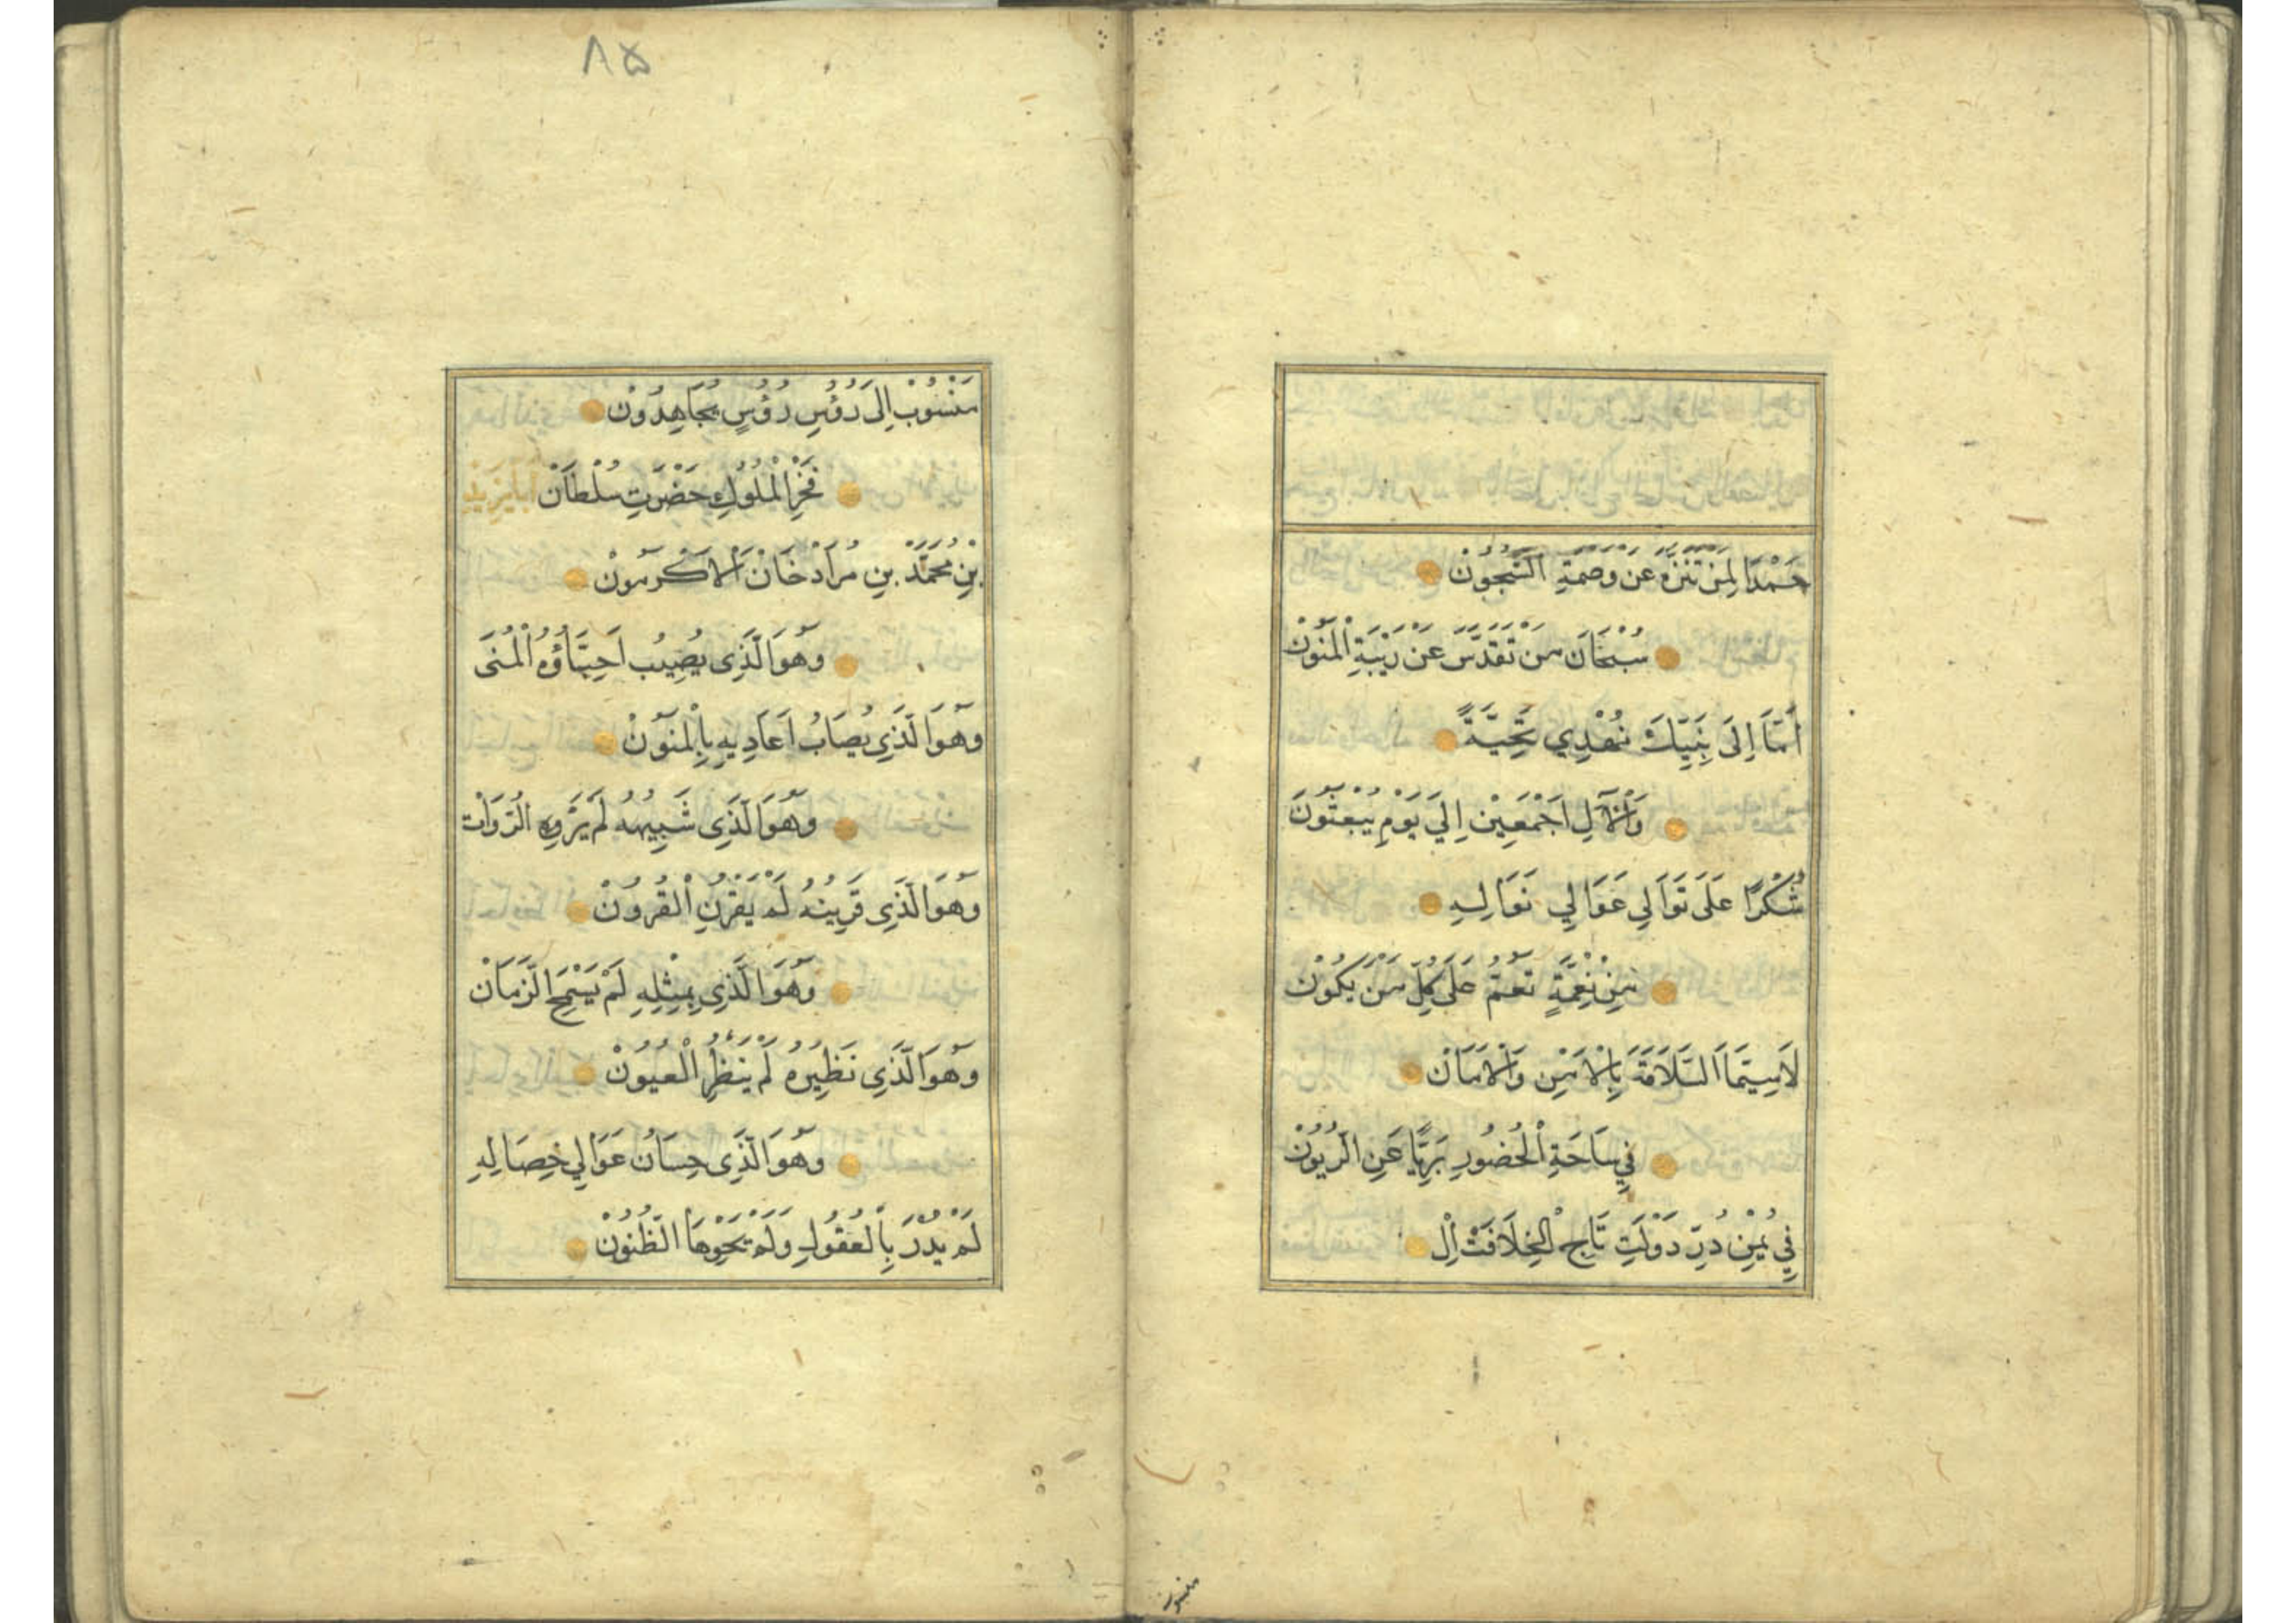 حَمْدًا لِمَنْ تَنَزَّهَ عَنْ وَصْمَةِ الشُّجُونْ
سُبْحَانَ مَنْ تَقَدَّسَ عَنْ رَيْبَةِ الْمَنُونْ
اَمَّا اِلَى نَبِيِّكَ نُهْدِي تَحِيَّةً
وَالْآلِ اَجْمَعِيْنَ اِلَى يَوْمِ يُبْعَثُونَ
شُكْرًا عَلَى تَوَالِي عَوَالِي نَوَالِهِ
مِنْ نِعْمَةٍ تَعُمُّ عَلَى كُلِّ مَنْ يَكُونْ
لَاسِيَّمَا السَّلَامَةَ بِالْاَمْنِ وَالْاَمَانْ
فِي سَاحَةِ الْحُضُورِ بَرِيًّا عَنِ الرُّيُونْ
فِي يُمْنِ دُرِّ دَوْلَتِ تَاجِ الْخِلَافَتْ اِلْ
منسوب
٨٥
مَنْسُوبْ اِلَى رُؤُسِ رُؤُسٍ مُجَاهِدُونْ
فَخْرِ الْمُلُوكِ حَضْرَتِ سُلْطَانْ بَايَزِيدِ
بْنِ مُحَمَّدْ بِنِ مُرَادْ خَانْ اَلْاَكْرَمُونْ
وَهُوَ الَّذِي يُصِيبُ اَحِبَّاؤُهُ الْمُنَى
وَهُوَ الَّذِي يُصَابُ اَعَادِيهِ بِالْمَنُونْ
وَهُوَ الَّذِي شَبِيهُهُ لَمْ يَرْوِهِ الرُّوَاتْ
وَهُوَ الَّذِي قَرِينُهُ لَمْ يَقْرُنِ الْقُرُونْ
وَهُوَ الَّذِي بِمِثْلِهِ لَمْ يَسْمَحِ الزَّمَانْ
وَهُوَ الَّذِي نَظِيرُهُ لَمْ يَنْظُرِ الْعُيُونْ
وَهُوَ الَّذِي حِسَانُ عَوَالِي خِصَالِهِ
لَمْ يُدْرَ بِالْعُقُولِ وَلَمْ تَحْوِهَا الظُّنُونْ